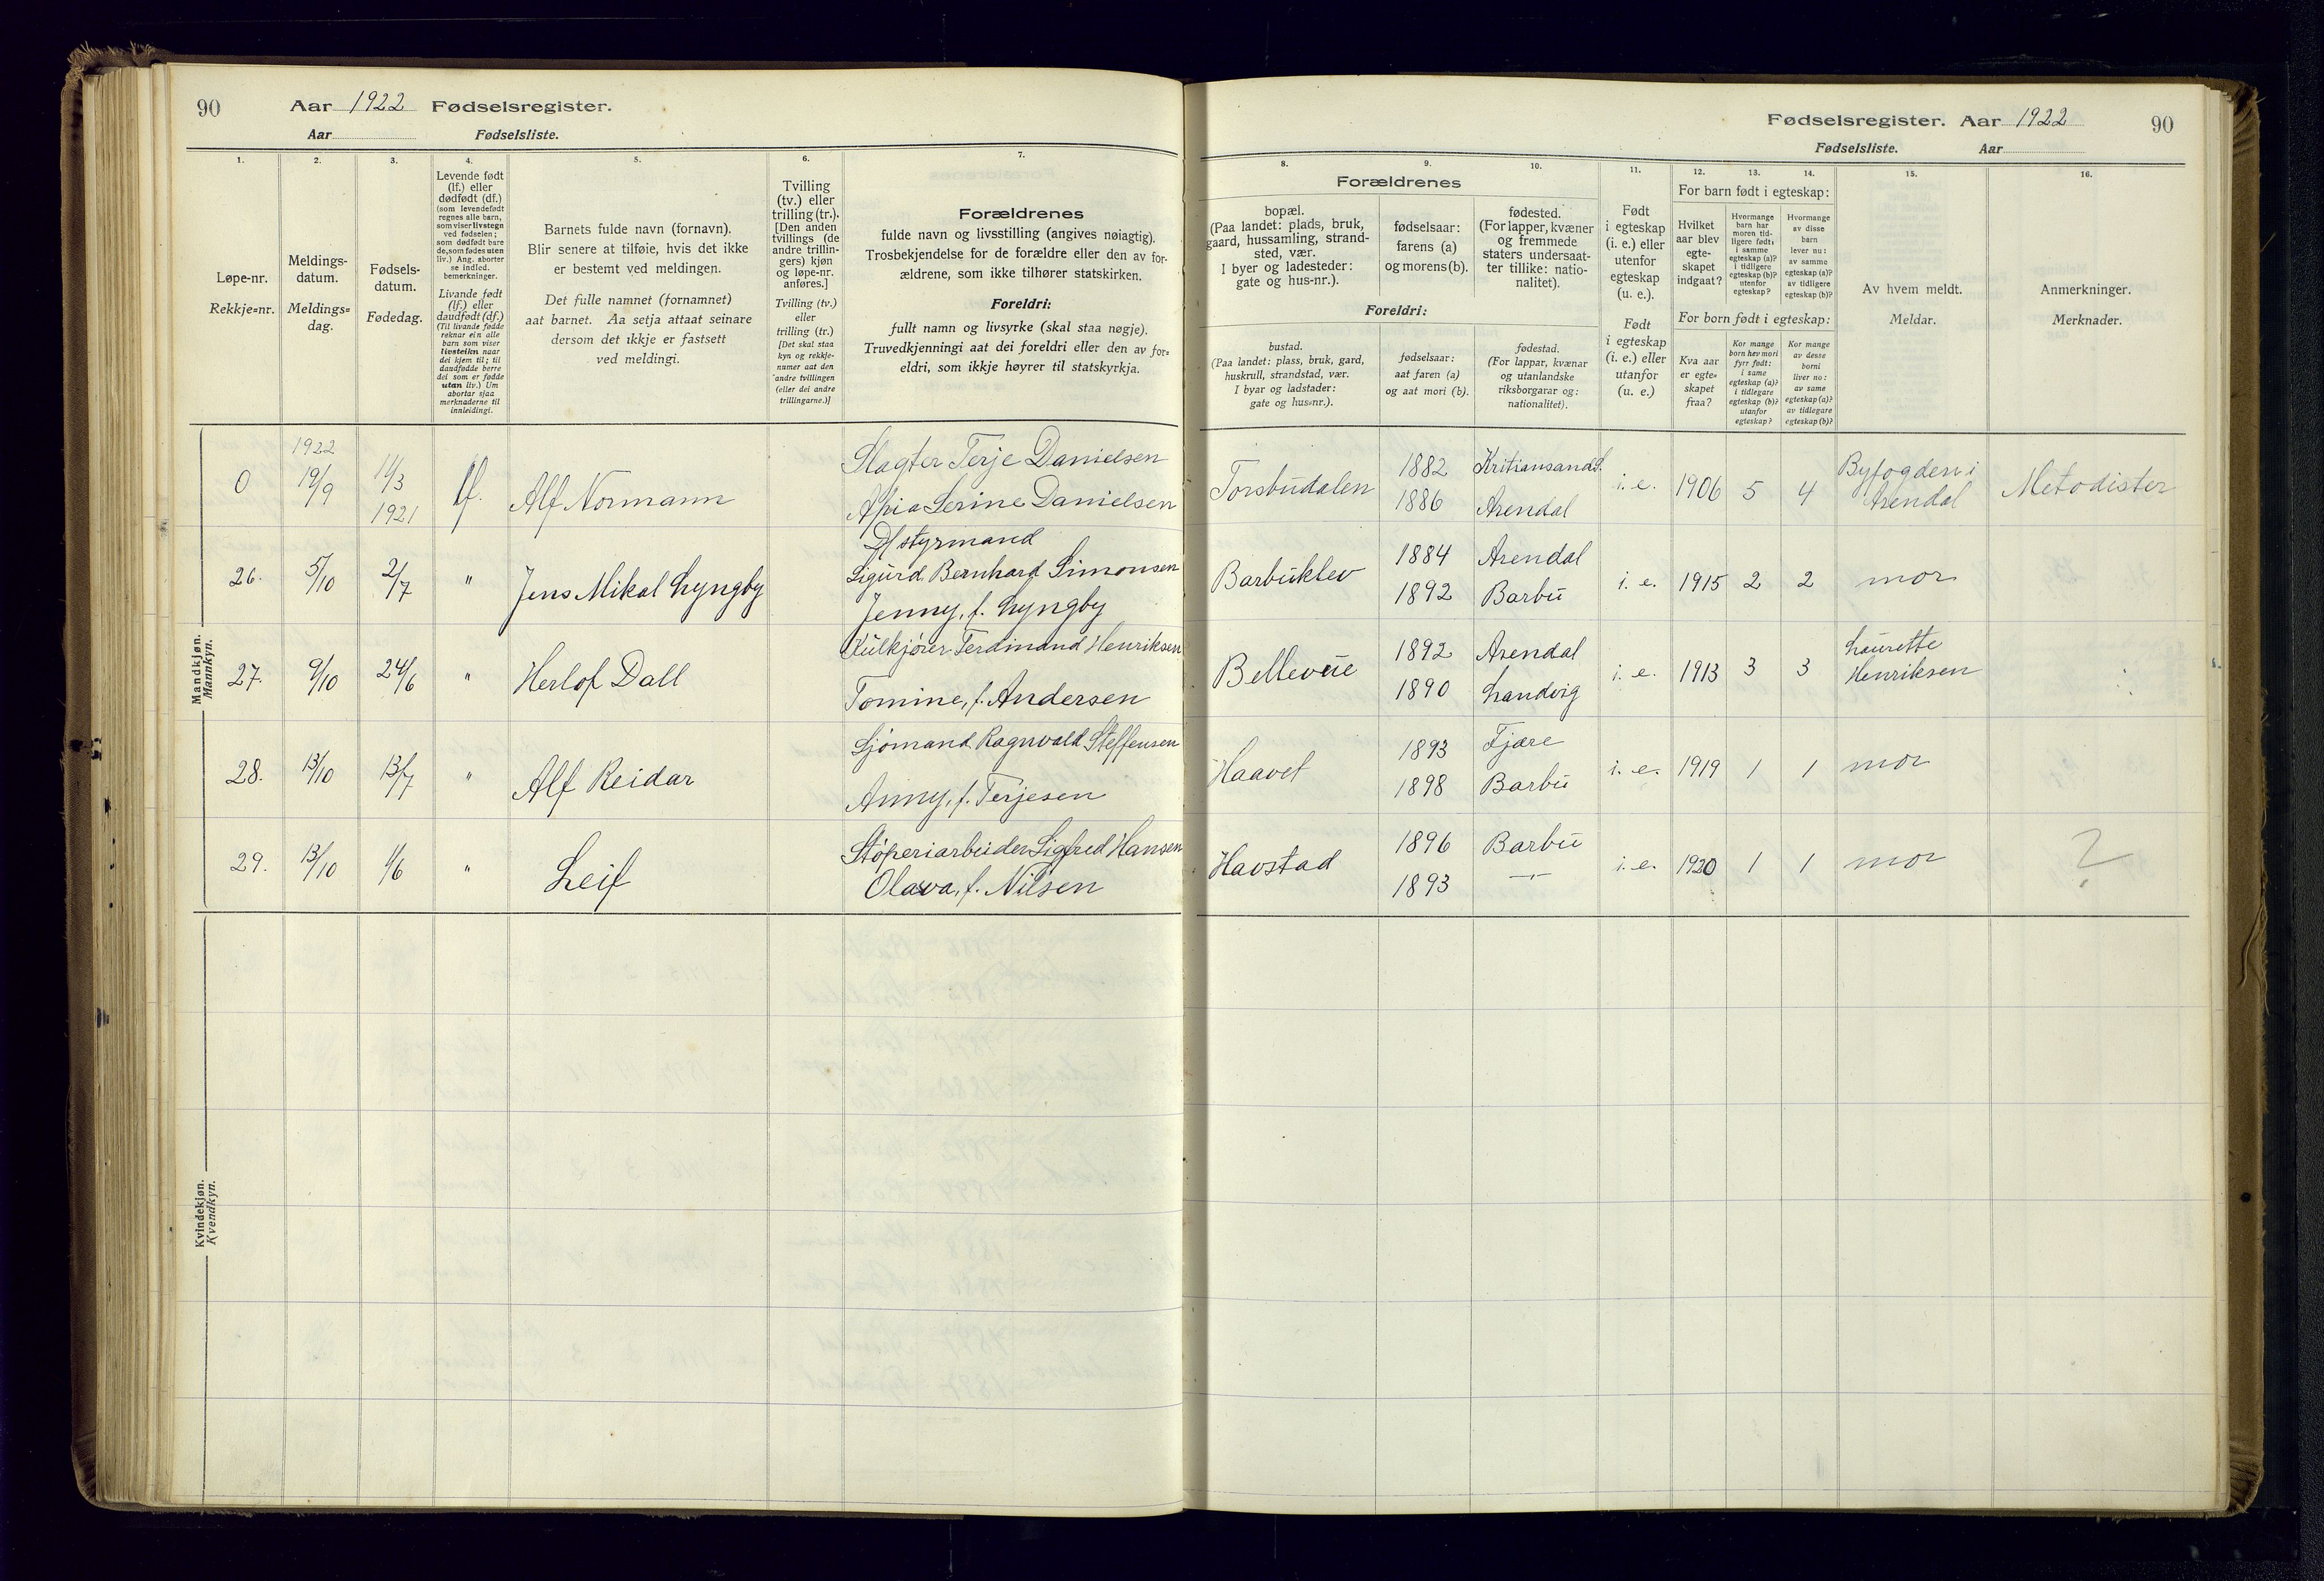 90 Aar 1922 Fødselsregister.
Aar Fødselsliste.
1. 2. 3. 4. 5. 6. 7.
Løpe-nr.
Rekkje-nr.
Meldings-
datum.
Meldings-
dag.
Fødsels-
datum.
Fødedag.
Levende født
(lf.) eller
dødfødt (df.)
(som levendefødt
regnes alle barn,
som viser livstegn
ved fødselen;
som dødfødt bare
de, som fødes uten
liv.) Ang. aborter
se indled.
bemerkninger.
Livande født
(lf.) eller
daudfødt (df.)
(Til livande fødde
reknar ein alle
barn som viser
livsteikn naar
dei kjem til; til
daudfødde berre
dei som er fødde
utan liv.) Um
abortar sjaa
merknaderne til
innleidingi.
Barnets fulde navn (fornavn).
Blir senere at tilføie, hvis det ikke
er bestemt ved meldingen.
Det fulle namnet (fornamnet)
aat barnet. Aa setja attaat seinare
dersom det ikkje er fastsett
ved meldingi.
Tvilling
(tv.) eller
trilling (tr.).
[Den anden
tvillings (de
andre trillin-
gers) kjøn
og løpe-nr.
anføres.]
Tvilling (tv.)
eller
trilling (tr.)
[Det skal staa
kyn og rekkje-
numer aat den
andre tvillingen
(eller dei andre
trillingarne.)]
Forældrenes
fulde navn og livsstilling (angives nøiagtig).
Trosbekjendelse for de forældre eller den av for-
ældrene, som ikke tilhører statskirken.
Foreldri:
fullt namn og livsyrke (skal staa nøgje).
Truvedkjenningi aat dei foreldri eller den av for-
eldri, som ikkje høyrer til statskyrkja.
Mandkjøn.
Mannkyn.
0 1922 19/9 11/3 1921 lf. Alf Normann
Slagter Terje Danielsen
Serine Danielsen
26. 5/10 2/7 " Jens Mikal Lyngby
styrmand
Sigurd Bernhard Simonsen
Jenny, f. Lyngby
27. 9/10 24/6 " Herlof Dall
Kulkjører Ferdinand Henriksen
Tomine, f. Andersen
28. 13/10 13/7 " Alf Reidar
Sjömand Ragnvald Steffensen
Anny, f. Terjesen
29. 13/10 1/6 " Leif
Støperiarbeider Sigfred Hansen
Olava, f. Nilsen
Kvindekjøn.
Kvendkyn.
Fødselsregister. Aar 1922 90
Fødselsliste. Aar
8. 9. 10. 11. 12. 13. 14. 15. 16.
Forældrenes
bopæl.
(Paa landet: plads, bruk,
gaard, hussamling, strand-
sted, vær.
I byer og ladesteder:
gate og hus-nr.).
fødselsaar:
farens (a)
og morens (b).
fødested.
(For lapper, kvæner
og fremmede
staters undersaat-
ter tillike: natio-
nalitet).
Foreldri:
bustad.
(Paa landet: plass, bruk, gard,
huskrull, strandstad, vær.
I byar og ladstader:
gate og hus-nr.).
fødselsaar:
aat faren (a)
og aat mori (b).
fødestad.
(For lappar, kvænar
og utanlandske
riksborgarar og:
nationalitet).
Født
i egteskap
(i. e.) eller
utenfor
egteskap
(u. e.).
Født
i egteskap
(i. e.) eller
utanfor
(u. e.).
For barn født i egteskap:
Hvilket
aar blev
egte-
skapet
indgaat?
Hvormange
barn har
moren tid-
ligere født:
i samme
egteskap (a)?
i tidligere
egteskap (b)?
utenfor
egteskap?
Hvormange
av disse
barn
lever nu:
av samme
egteskap (a)?
av tidligere
egteskap (b)?
For born født i egteskap:
Kva aar
er egte-
skapet
fraa?
Kor mange
born hev mori
fyrr født:
i same
egteskap (a)?
i tidlegare
egteskap (b)?
utanfor
egteskap?
Kor mange
av desse
borni
liver no:
av same
egteskap (a)?
av tidlegare
egteskap (b)?
Av hvem meldt.
Meldar.
Anmerkninger.
Merknader.
Torsbudalen 1882 Kritiansand S. i. e. 1906 5 4 Byfogden i Metodister
1886 Arendal Arendal
Barbuklev 1884 Arendal i. e. 1915 2 2 mor
1892 Barbu
Bellevue 1892 Arendal i. e. 1913 3 3 Laurette
1890 Landvig Henriksen
Haavet 1893 Fjære i. e. 1919 1 1 mor
1898 Barbu
Havstad 1896 Barbu i. e. 1920 1 1 mor ?
1893 — " —